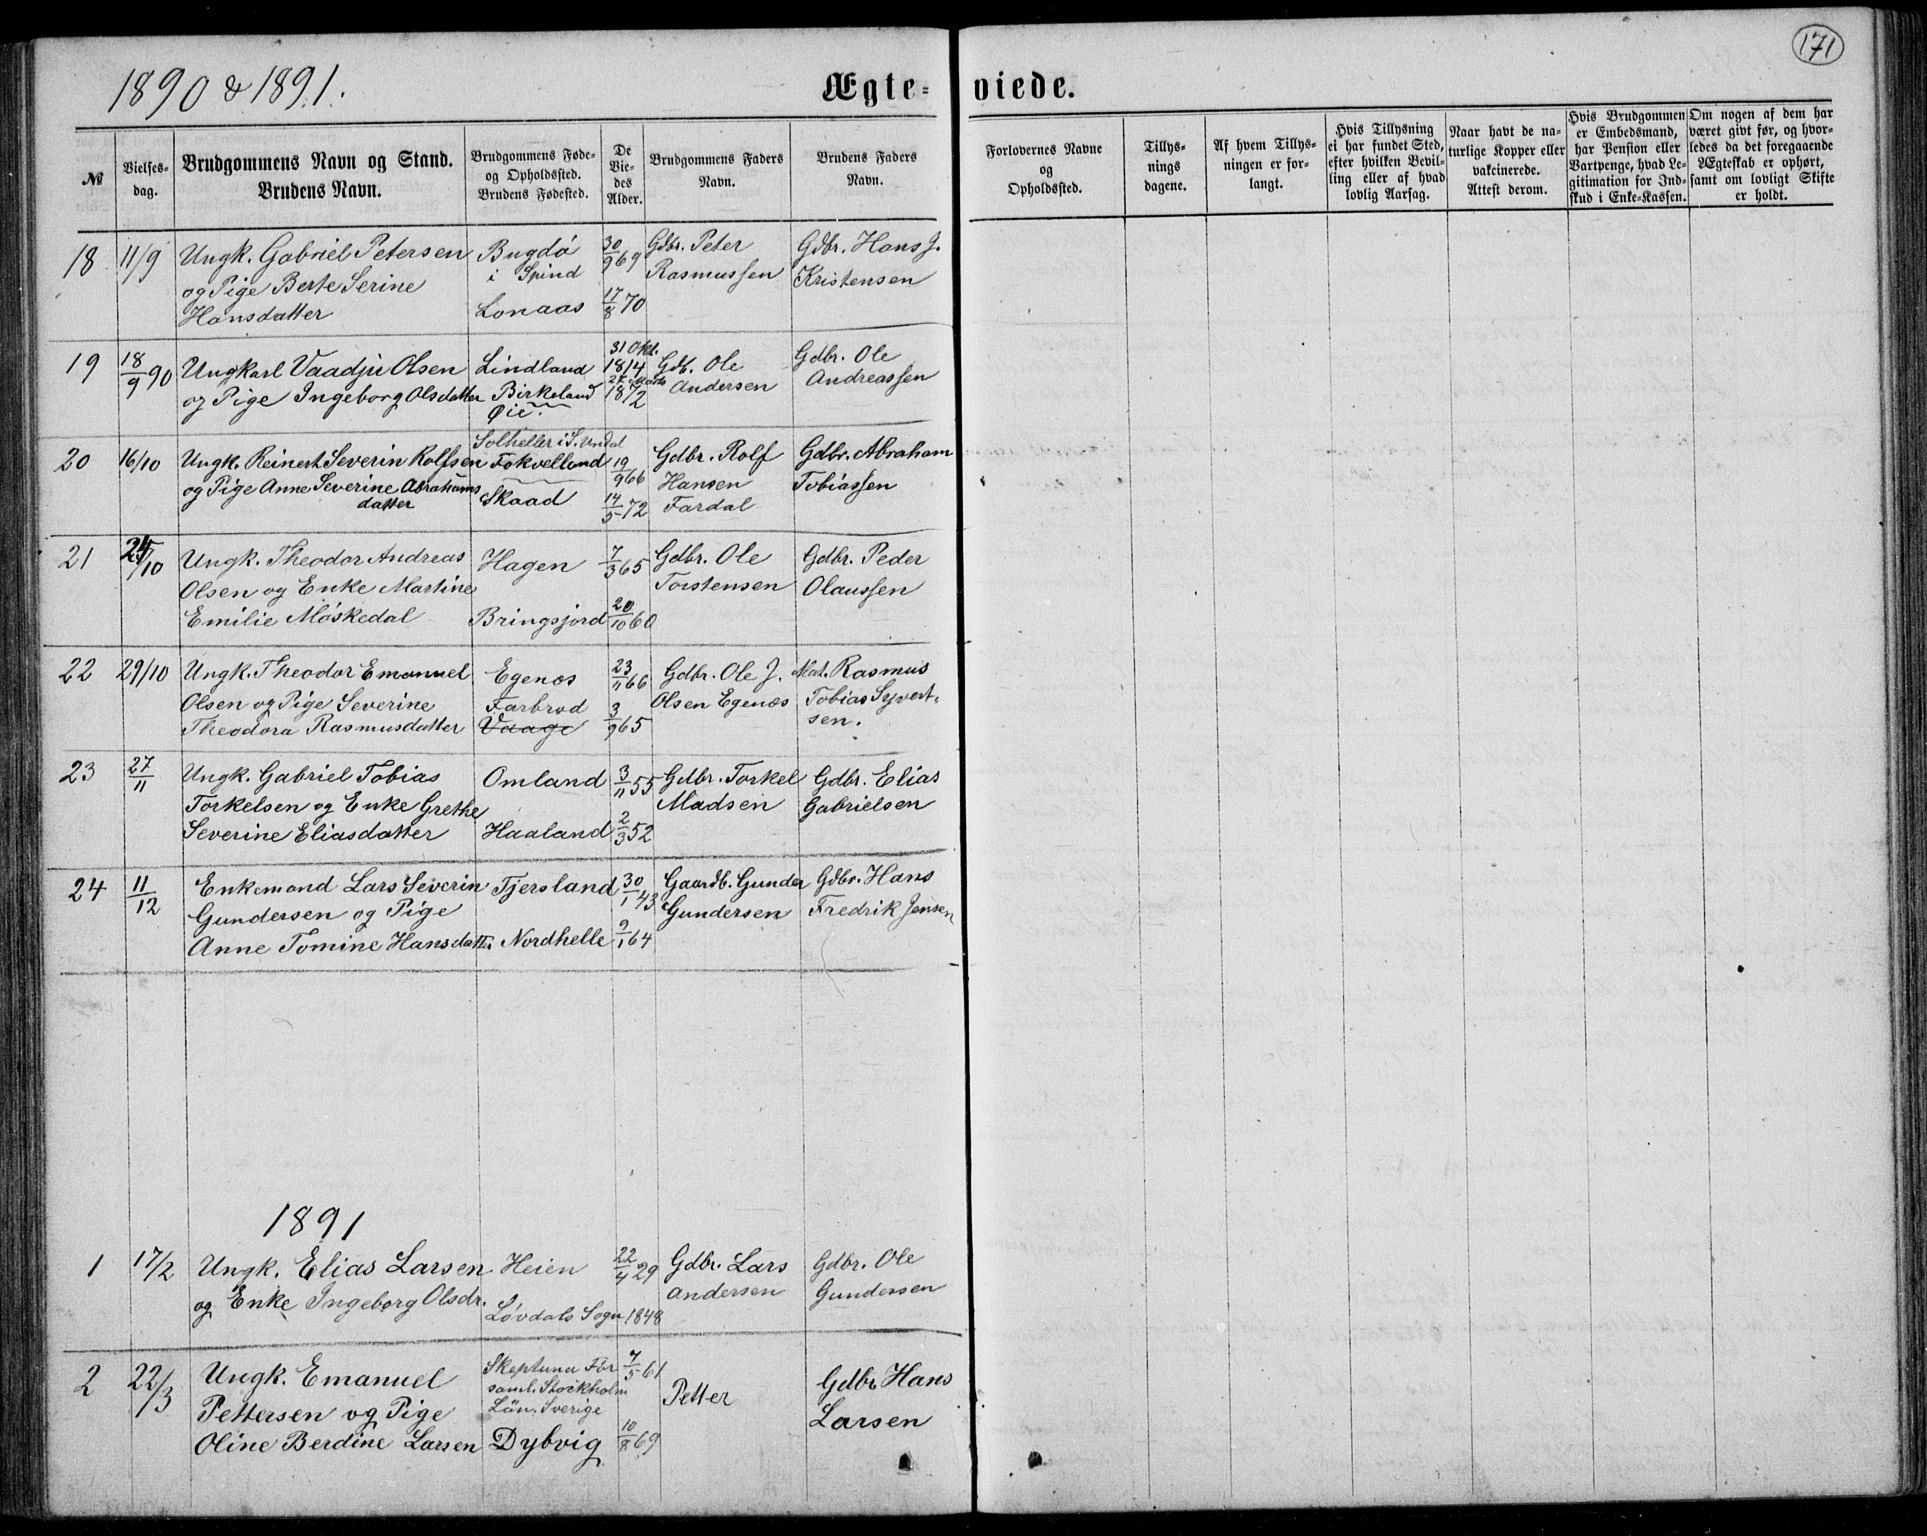 171
1890 & 1891.
Ægte-
viede.
№
Vielses-
dag.
Brudgommens Navn og Stand.
Brudens Navn.
Brudgommens Føde-
og Opholdssted.
Brudens Fødested.
De
Vie-
des
Alder.
Brudgommens Faders
Navn.
Brudens Faders
Navn.
Forlovernes Navne
og
Opholdssted.
Tillys-
nings
dagene.
Af hvem Tillys-
ningen er for-
langt.
Hvis Tillysning
ei har fundet Sted,
efter hvilken Bevil-
ling eller af hvad
lovlig Aarsag.
Naar havt de na-
turlige Kopper eller
vakcinerede.
Attest derom.
Hvis Brudgommen
er Embedsmand,
har Pension eller
Vartpenge, hvad Le-
gitimation for Ind-
skud i Enke-Kassen.
Om nogen af dem har
været givt før, og hvor-
ledes da det foregaaende
Ægteskab er ophørt,
samt om lovligt Skifte
er holdt.
18 11/9 Ungk. Gabriel Petersen Bugdø 30/9 69 Gdbr. Peter Gdbr. Hans J.
og Pige Berte Serine i Spind Rasmussen Kristensen
Hansdatter Lonaas 17/8 70
19 18/9 90 Ungkarl Vaadju Olsen Lindland 31 Okt. 1814 Gdb. Ole Gdbr. Ole
og Pige Ingeborg Olsdatter Birkeland 27 Marts 1872 Andersen Andreassen
Øie.
Solheller i S. Undal
20 16/10 Ungk. Reinert Severin Rolfsen Fokvelland 19/9 66 Gdbr. Rolf Gdbr. Abraham
og Pige Anne Severine Abrahams Skaad 14/5 72 Hansen Tobiassen
datter Fardal
21 24/10 Ungk. Theodor Andreas Hagen 7/3 65 Gdbr. Ole Gdbr. Peder
Olsen og Enke Martine Torstensen Olaussen
Emilie Møskedal Bringsjord 20/10 60
22 29/10 Ungk. Theodor Emanuel Egenæs 23/11 66 Gdbr. Ole J. Mat. Rasmus
Olsen og Pige Severine Farbrød 3/9 65 Olsen Egenæs Tobias Syvert-
Theodora Rasmusdatter Vaage sen.
23 27/11 Ungk. Gabriel Tobias Omland 3/11 55 Gdbr. Torkel Gdbr. Elias
Torkelsen og Enke Grethe Madsen Gabrielsen
Severine Eliasdatter Haaland 2/3 52
24 11/12 Enkemand Lars Severin Tjersland 30/1 43 Gaardb. Gunder Gdbr. Hans
Gundersen og Pige Gundersen Fredrik Jensen
Anne Tomine Hansdatt. Nordhelle 9/1 64
1891
1 17/2 Ungk. Elias Larsen Heien 22/4 29 Gdbr. Lars Gdbr. Ole
og Enke Ingeborg Olsdr. Løvdals Sogn 1848 Andersen Gundersen
2 22/3 Ungk. Emanuel Skeptuna För 7/5 61 Petter Gdbr Hans
Pettersen og Pige saml. Stockholm Larsen
Län. Sverige
Oline Berdine Larsen Dybvig 10/8 69